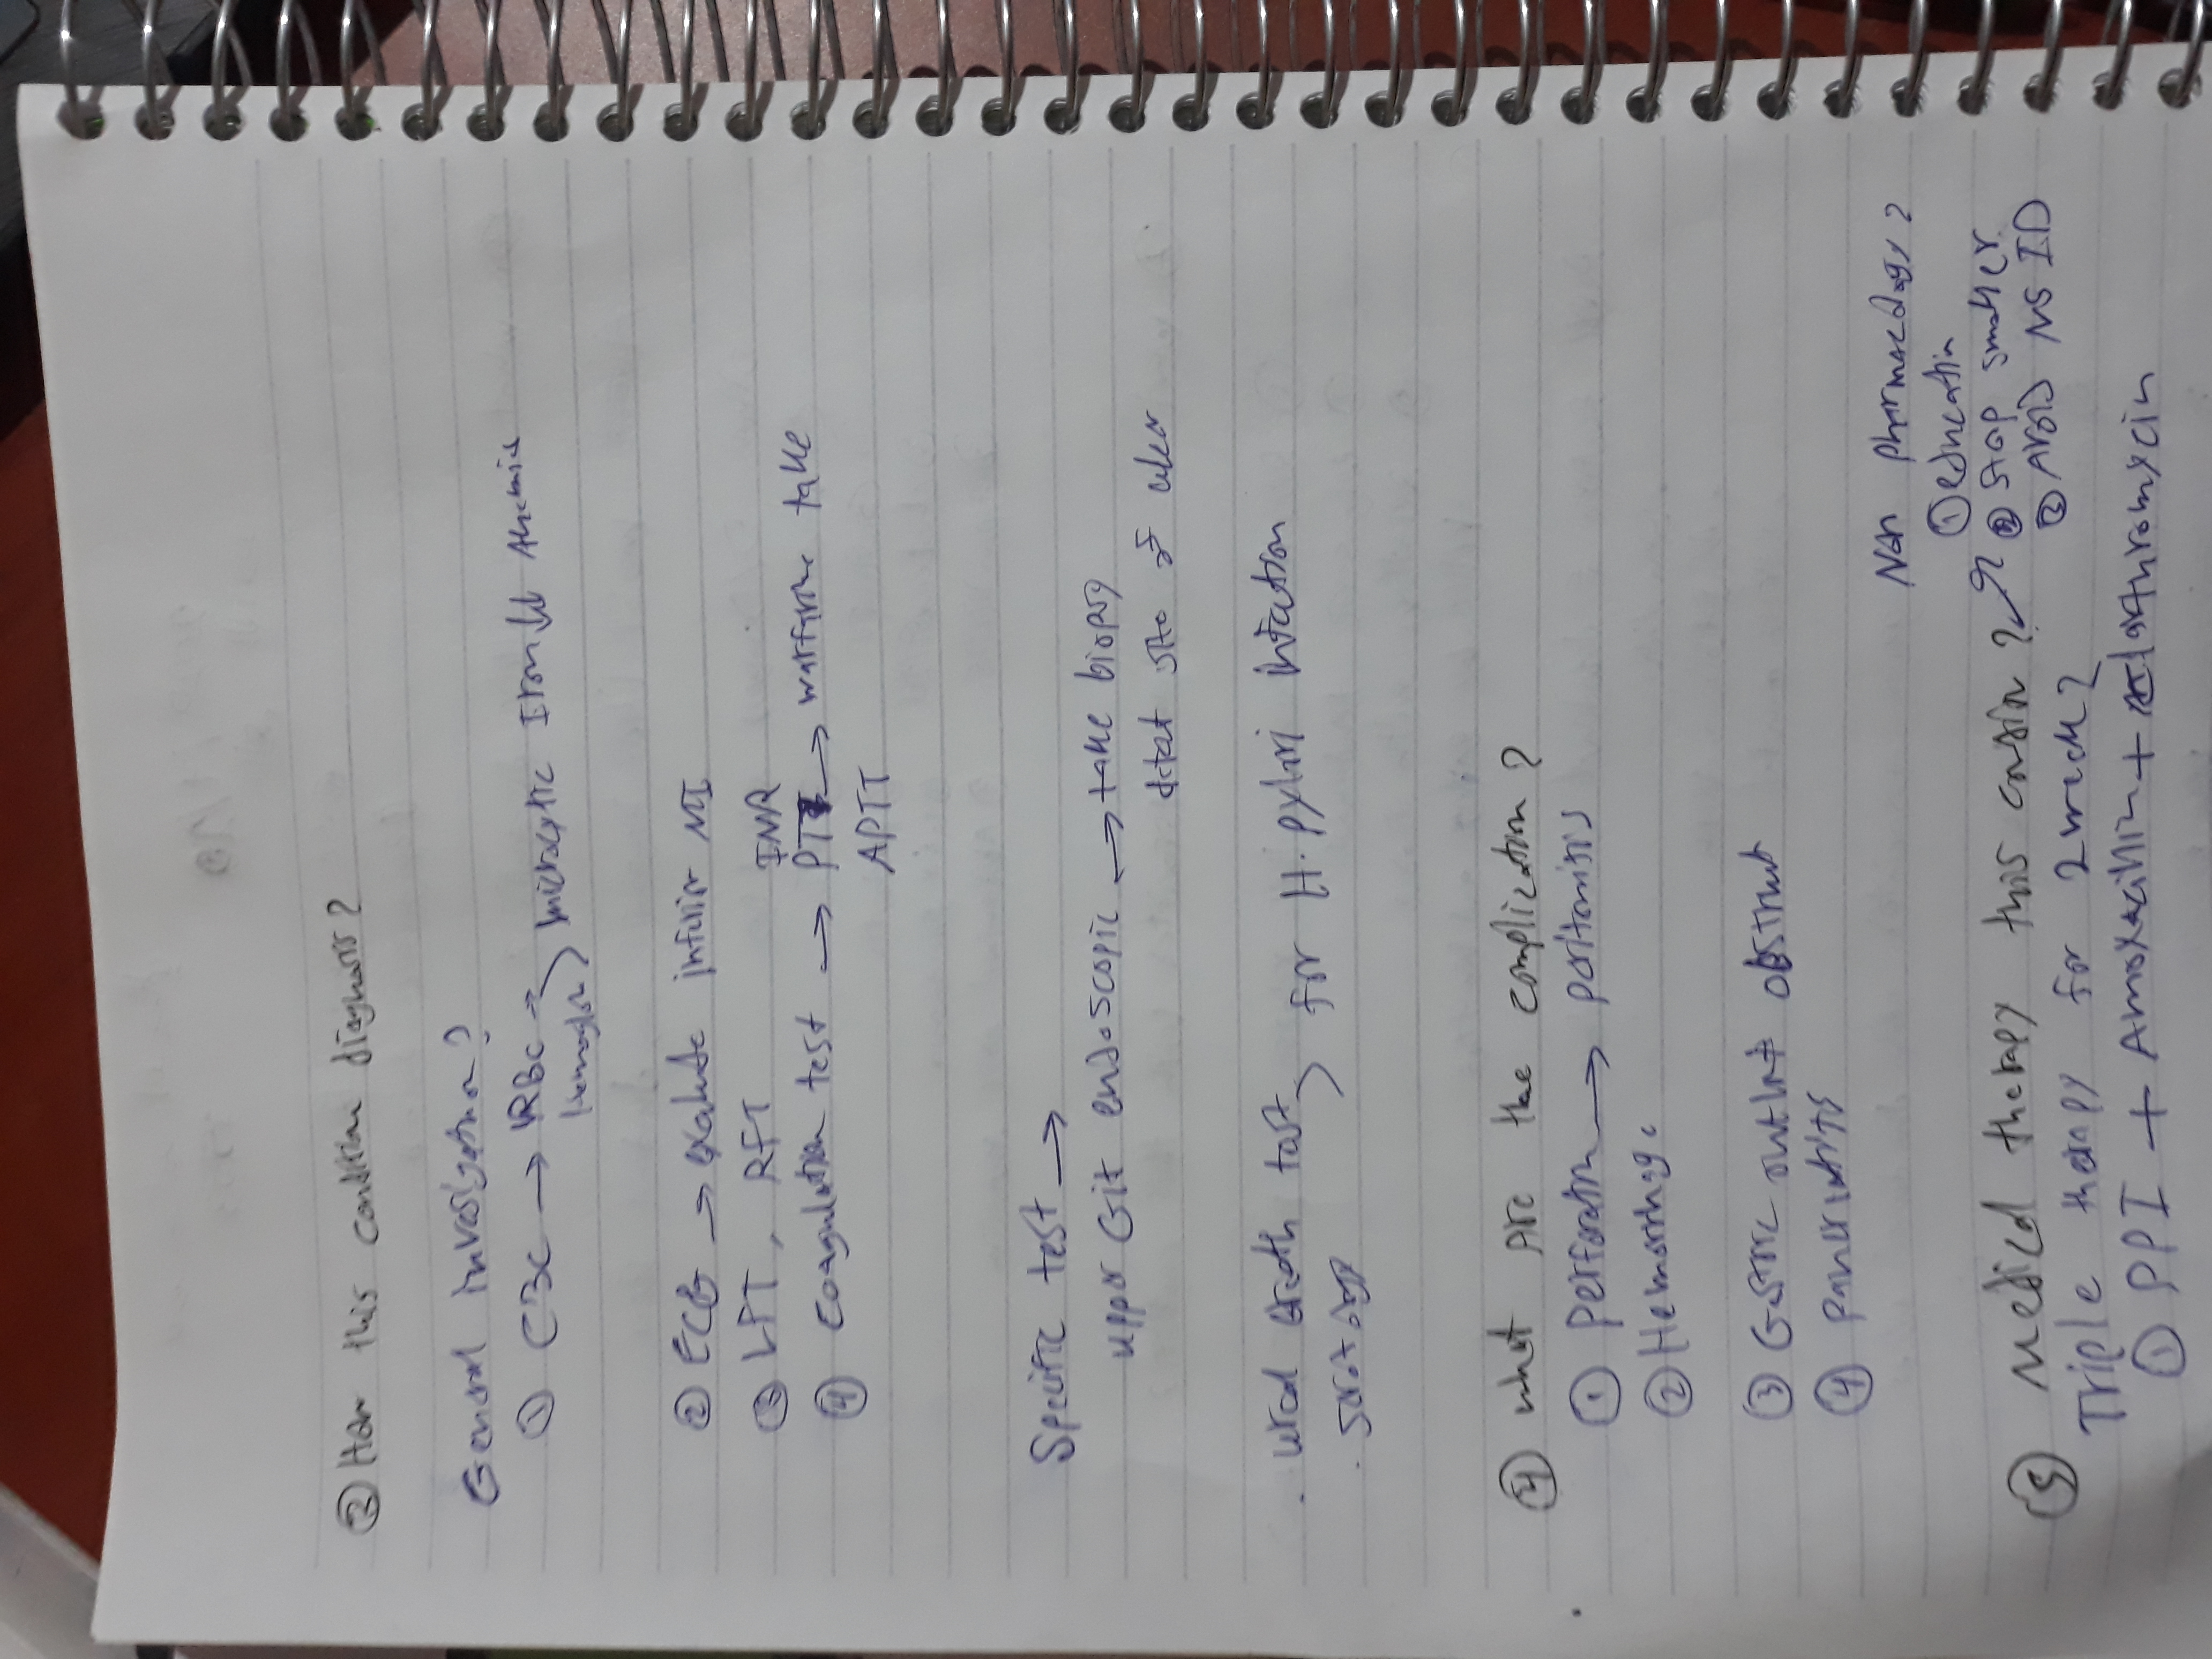 ② How this condition diagnosis?
General invesigation?
① CBC → RBC → microcytic Iron ↓↓ Anemia
hemoglon
② ECG → exclude inferior MI
③ LFT, RFT
INR
④ Coagulation test → PT → warfrine take
APTT
Specific test →
upper Git endoscopic → take biopsy
detect site of ulcer
. urea breath test
. serology } for H.pylori infection
④ what are the complication?
① Perforation → peritonitis
② Hemorrhage
③ Gastric outlet obstruct
④ pancriatits
Non pharmacology?
① education
② stop smoker
③ Avoid NSID
⑤ Medical therapy this condion?
Triple therapy for 2 week?
① PPI + Amoxacillin + clarthromycin